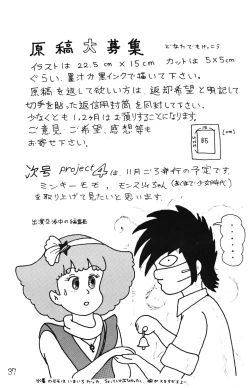 原稿大募集 どなたでもけっこう
イラストは 22.5 cm × 15 cm カットは 5×5cm
ぐらい、墨汁か黒インクで描いて下さい。
原稿を返して欲しい方は、返却希望と明記して
切手を貼った返信用封筒を同封して下さい。
少なくとも 1,2ヶ月はお預りすることになります。
ご意見、ご希望、感想等も
お寄せ下さい。
(cm)
次号 project4 は、11月ごろ発行の予定です。
ミンキーモモ、モンスリーちゃん(あくまで少女時代)
を取り上げて見たいと思います。
出演交渉中の編集長
37